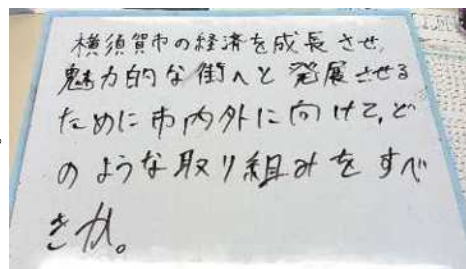 横須賀市の経済を成長させ、
魅力的な街へと発展させる
ために市内外に向けて、ど
のような取り組みをすべ
きか。